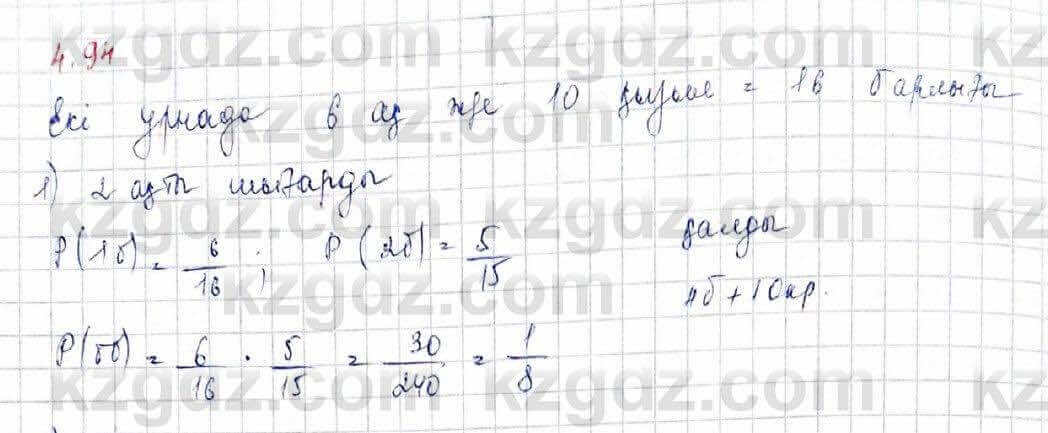 4.94
Екі урнада 6 ақ және 10 қызыл = 16 барлығы
1) 2 ақты шығарды
P(1б) = 6/16 ; P(2б) = 5/15 қалды
4б + 10кр.
P(бб) = 6/16 · 5/15 = 30/240 = 1/8
kzgdz.com